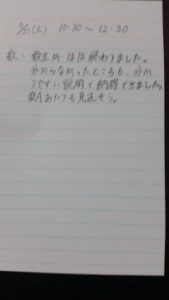 (土) 10:30～12:30
数: 数Ⅱが ほぼ終わりました。
分からなかったところも、分か
りやすい説明で納得できました。
数Aあたりも見直そう。